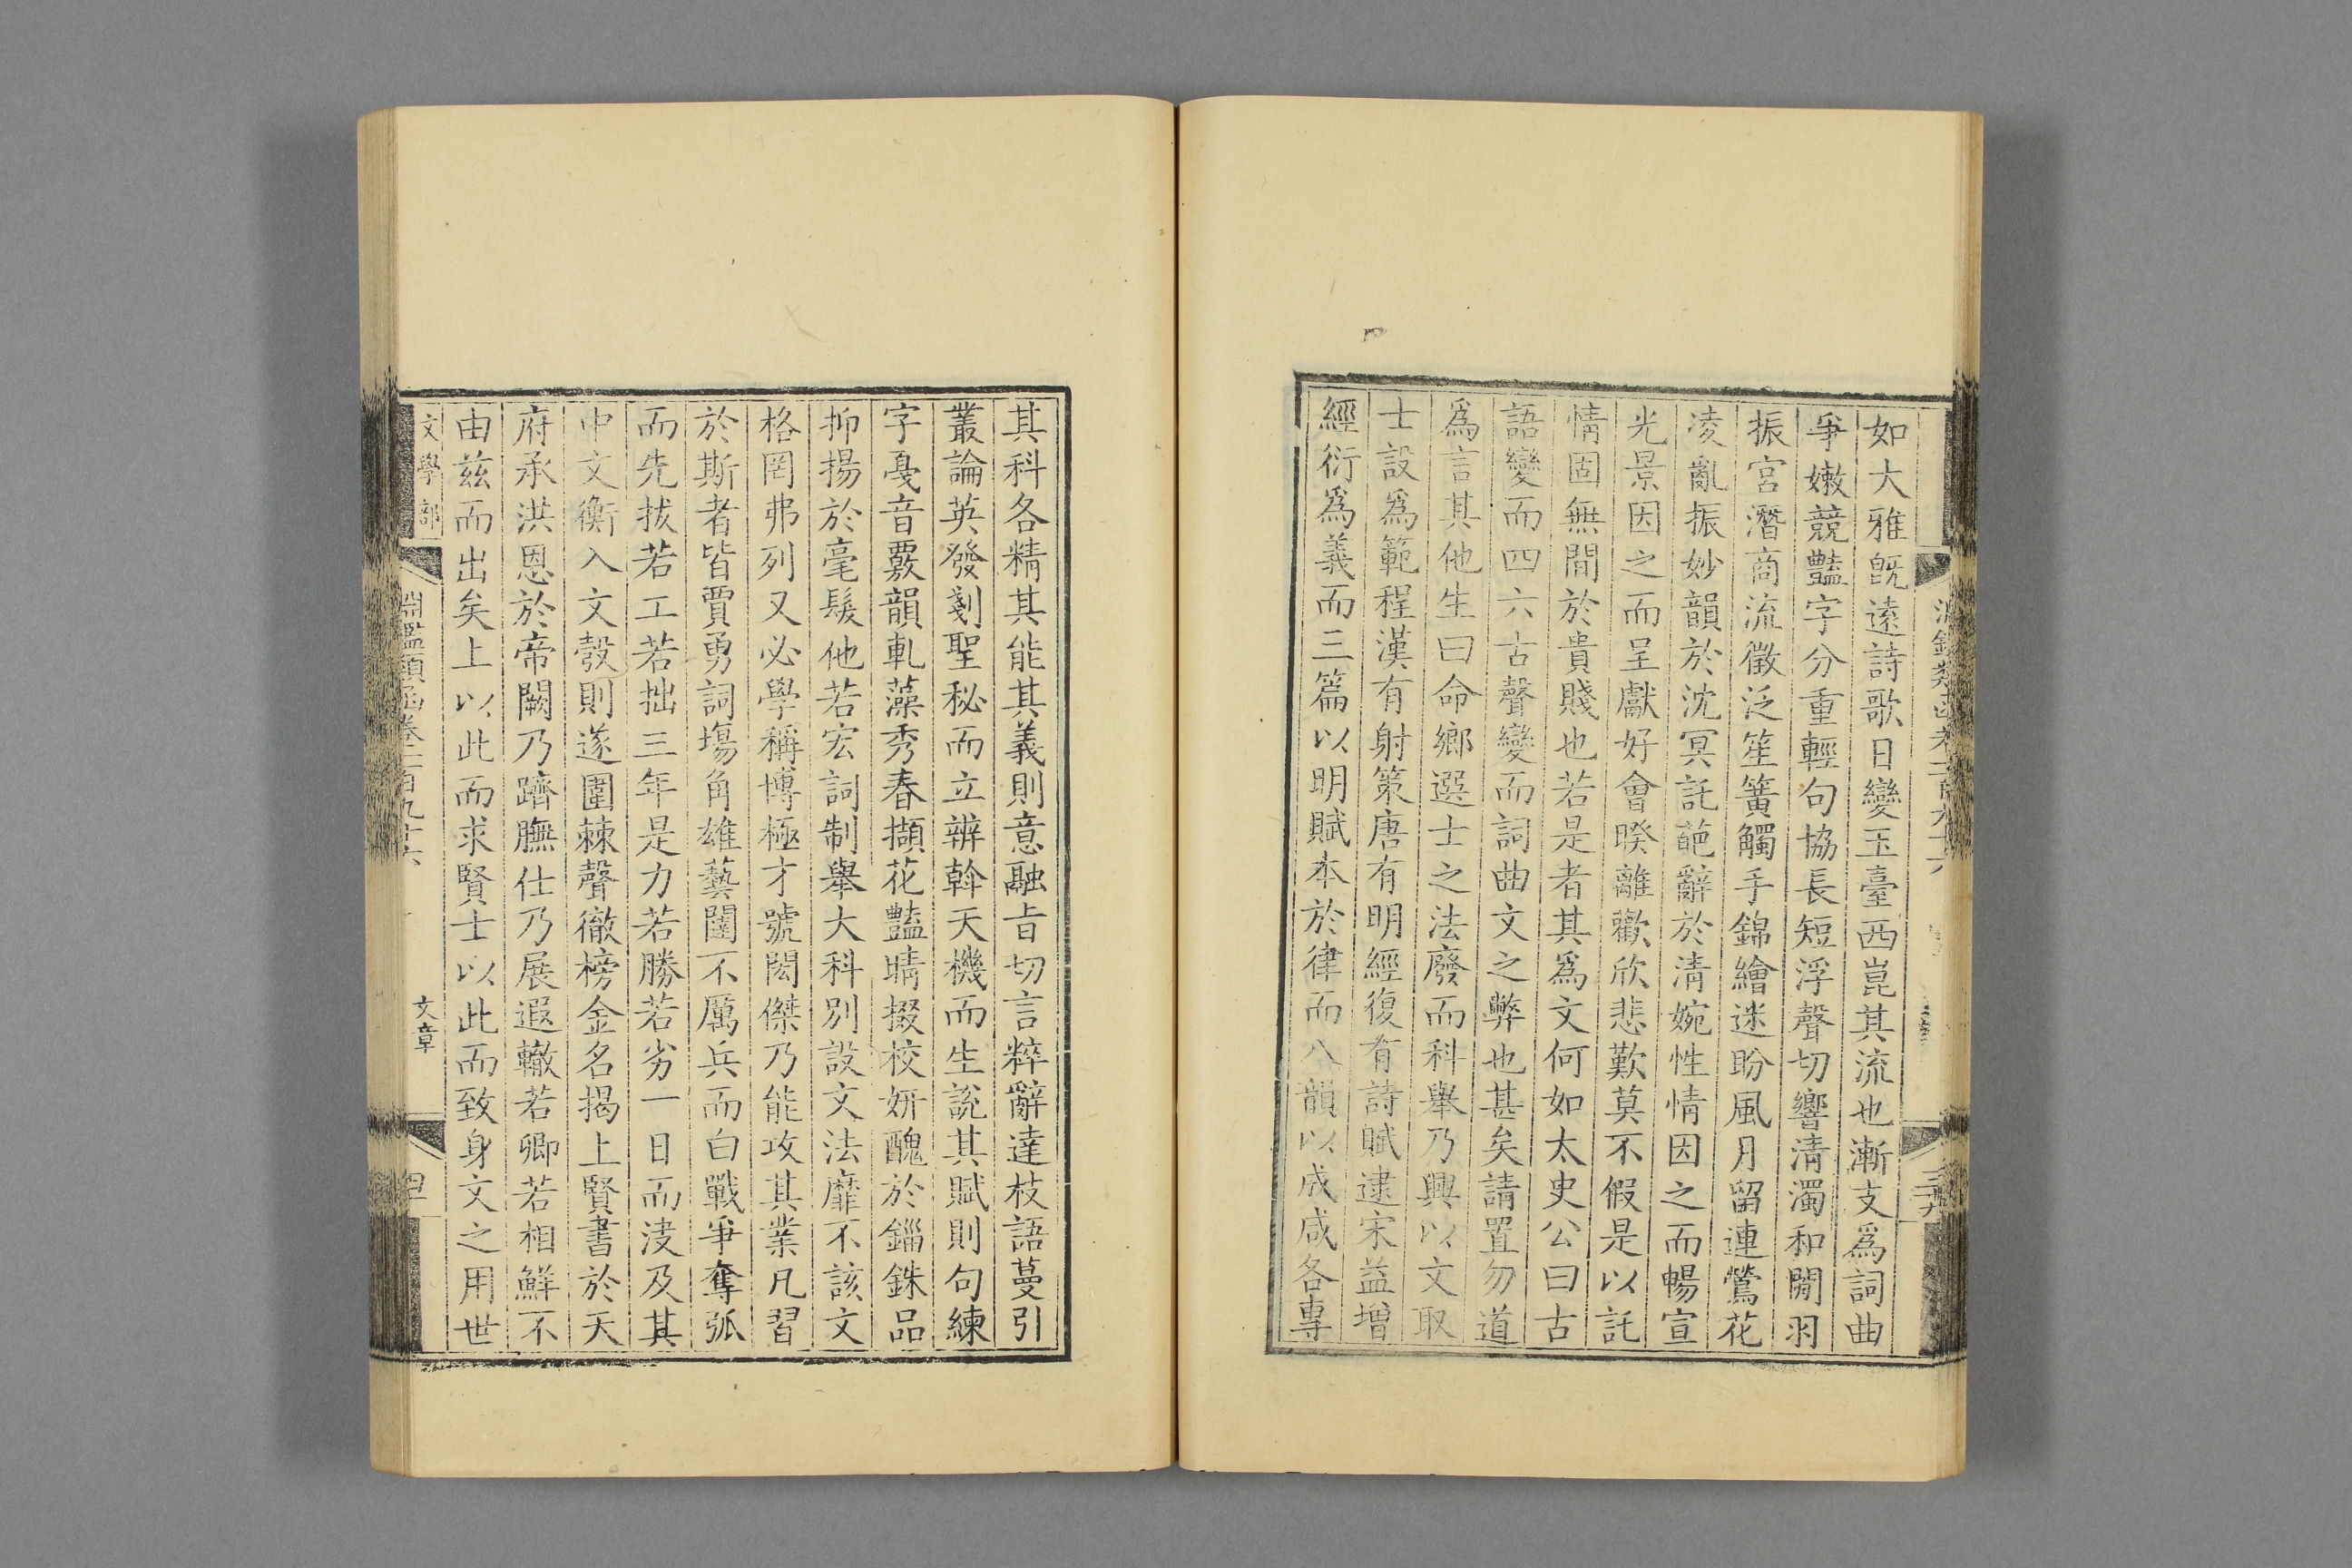 如大雅旣遠詩歌日變玉臺西崑其流也漸支爲詞曲
爭嫩競豔字分重輕句協長短浮聲切響清濁和閒羽
振宮潛商流徵泛笙簧觸手錦繪迷盼風月留連鶯花
凌亂振妙韻於沈冥託葩辭於清婉性情因之而暢宣
光景因之而呈獻好會暌離歡欣悲歎莫不假是以託
情固無間於貴賤也若是者其爲文何如太史公曰古
語變而四六古聲變而詞曲文之弊也甚矣請置勿道
爲言其他生曰命鄉選士之法廢而科舉乃興以文取
士設爲範程漢有射策唐有明經復有詩賦逮宋益增
經衍爲義而三篇以明賦本於律而八韻以成咸各專
其科各精其能其義則意融旨切言粹辭達枝語蔓引
叢論英發剗聖秘而立辨斡天機而生說其賦則句練
字戞音覈韻軋藻秀春擷花豔晴掇校妍醜於錙銖品
抑揚於毫髮他若宏詞制舉大科別設文法靡不該文
格罔弗列又必學稱博極才號閎傑乃能攻其業凡習
於斯者皆賈勇詞場角雄藝闈不厲兵而白戰爭奪弧
而先拔若工若拙三年是力若勝若劣一日而決及其
中文衡入文彀則遂圍棘聲徹榜金名揭上賢書於天
府承洪恩於帝闕乃躋膴仕乃展遐轍若卿若相鮮不
由茲而出矣上以此而求賢士以此而致身文之用世
文學部 淵鑑類函卷二百九十六 文章